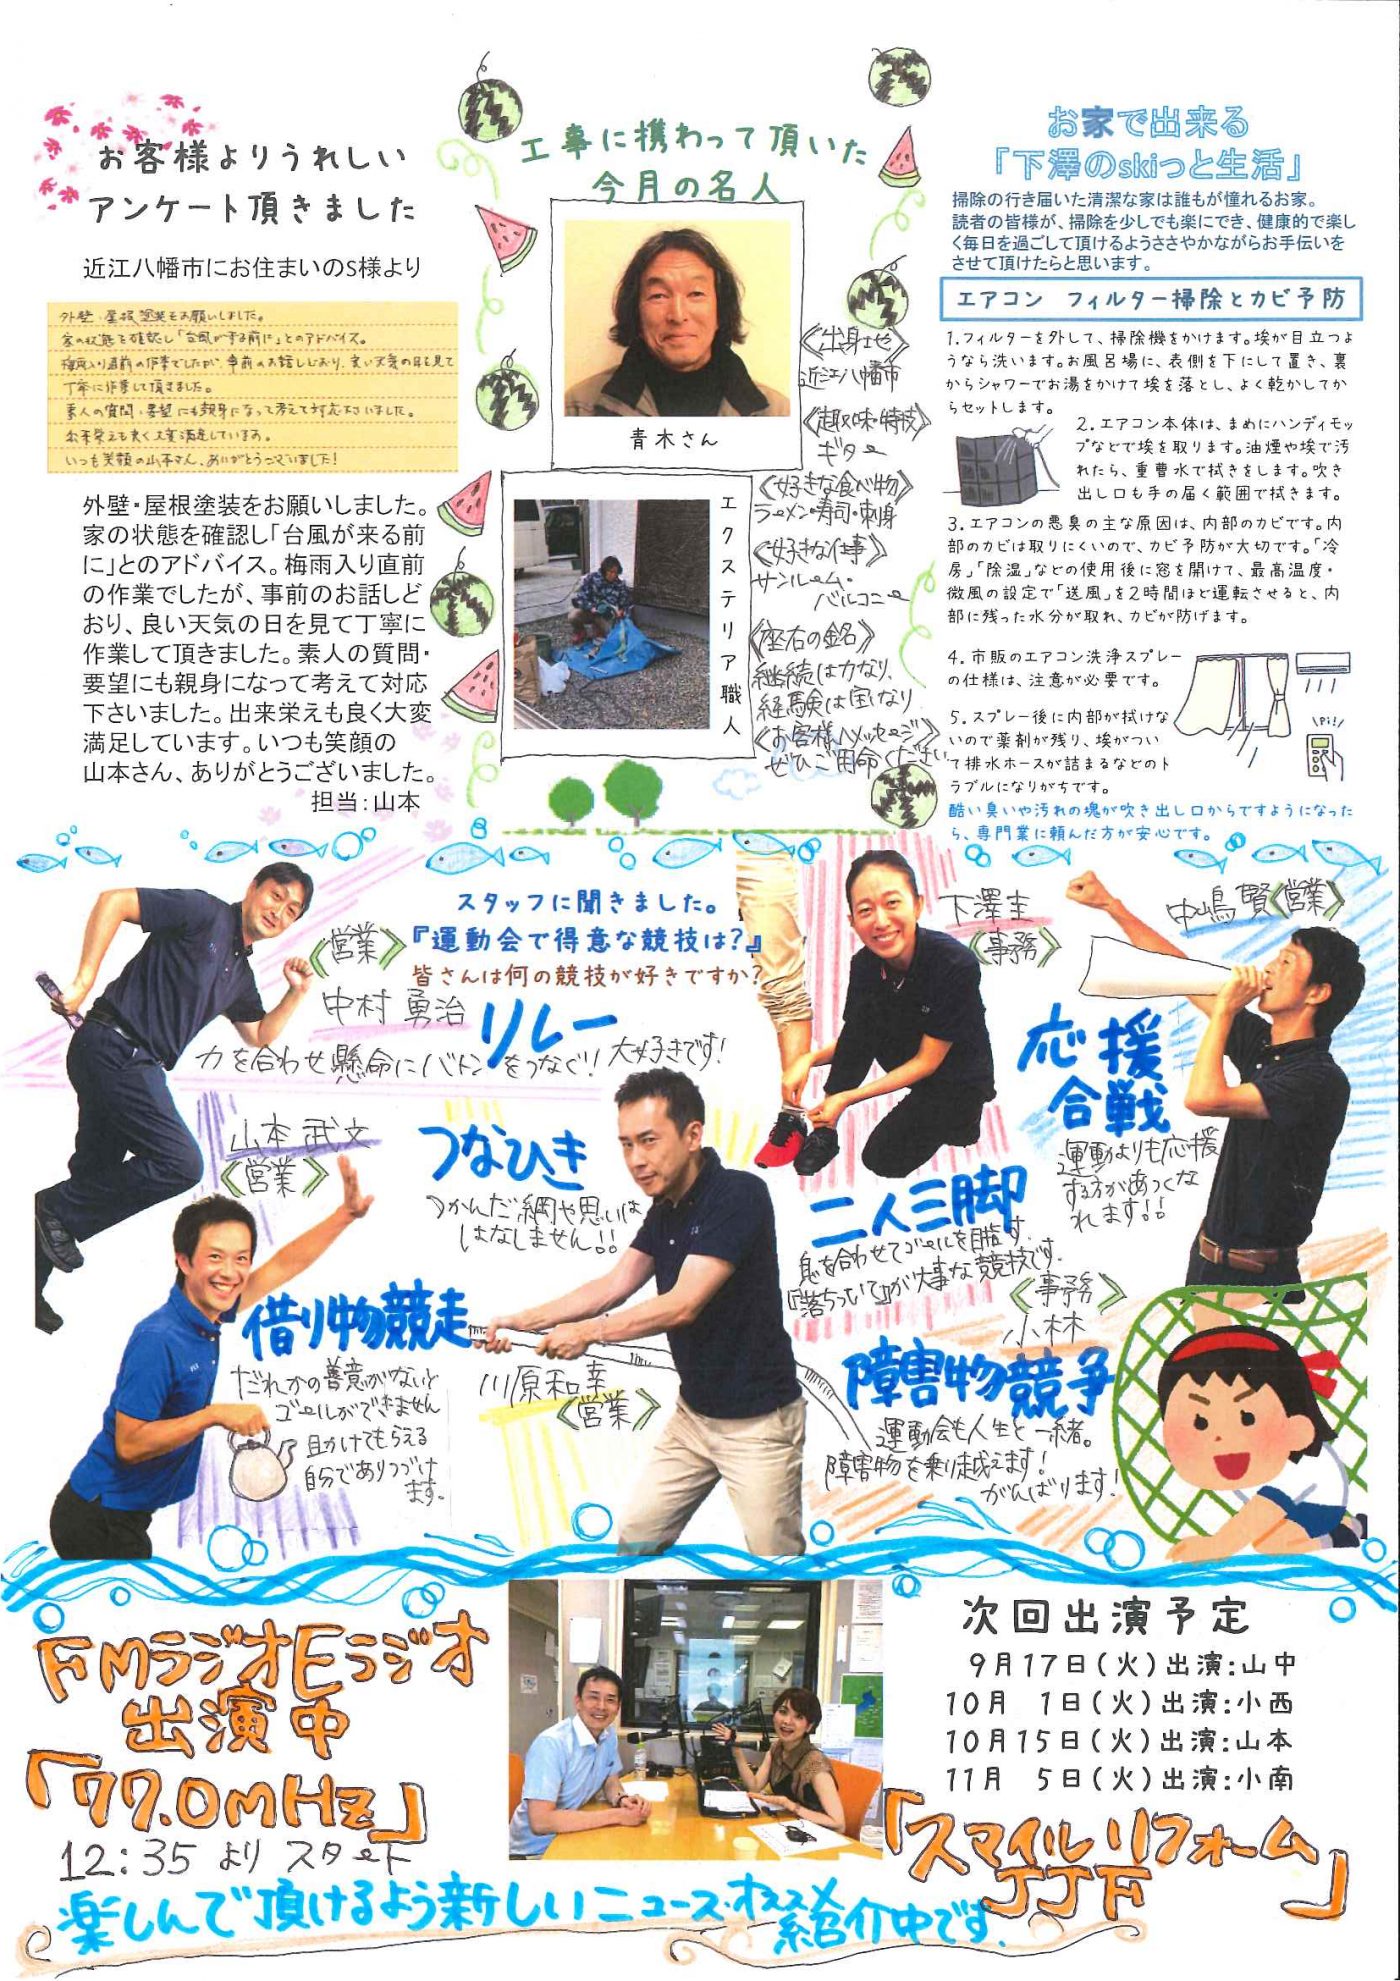 お客様よりうれしい
アンケート頂きました
近江八幡市にお住まいのS様より
外壁・屋根塗装をお願いしました。
家の状態を確認し「台風が来る前に」とのアドバイス。
梅雨入り直前の作業でしたが、事前のお話しどおり、良い天気の日を見て
丁寧に作業して頂きました。
素人の質問・要望にも親身になって考えて対応下さいました。
出来栄えも良く大変満足しています。
いつも笑顔の山本さん、ありがとうございました!
外壁・屋根塗装をお願いしました。
家の状態を確認し「台風が来る前
に」とのアドバイス。梅雨入り直前
の作業でしたが、事前のお話しど
おり、良い天気の日を見て丁寧に
作業して頂きました。素人の質問・
要望にも親身になって考えて対応
下さいました。出来栄えも良く大変
満足しています。いつも笑顔の
山本さん、ありがとうございました。
担当:山本
工事に携わって頂いた
今月の名人
青木さん
エクステリア職人
《出身地》
近江八幡市
《趣味・特技》
ギター
《好きな食べ物》
ラーメン・寿司・刺身
《好きな仕事》
サンルーム・
バルコニー
《座右の銘》
継続は力なり、
経験は宝なり
《お客様へメッセージ》
ぜひご用命ください
お家で出来る
「下澤のskiっと生活」
掃除の行き届いた清潔な家は誰もが憧れるお家。
読者の皆様が、掃除を少しでも楽にでき、健康的で楽し
く毎日を過ごして頂けるようささやかながらお手伝いを
させて頂けたらと思います。
エアコン フィルター掃除とカビ予防
1.フィルターを外して、掃除機をかけます。埃が目立つよ
うなら洗います。お風呂場に、表側を下にして置き、裏
からシャワーでお湯をかけて埃を落とし、よく乾かしてか
らセットします。
2.エアコン本体は、まめにハンディモッ
プなどで埃を取ります。油煙や埃で汚
れたら、重曹水で拭きをします。吹き
出し口も手の届く範囲で拭きます。
3.エアコンの悪臭の主な原因は、内部のカビです。内
部のカビは取りにくいので、カビ予防が大切です。「冷
房」「除湿」などの使用後に窓を開けて、最高温度・
微風の設定で「送風」を2時間ほど運転させると、内
部に残った水分が取れ、カビが防げます。
4.市販のエアコン洗浄スプレー
の仕様は、注意が必要です。
5.スプレー後に内部が拭けな
いので薬剤が残り、埃がつい
て排水ホースが詰まるなどのト
ラブルになりがちです。
Pi!
酷い臭いや汚れの塊が吹き出し口からですようになった
ら、専門業に頼んだ方が安心です。
スタッフに聞きました。
『運動会で得意な競技は?』
皆さんは何の競技が好きですか?
《営業》
中村 勇治
リレー
力を合わせ懸命にバトンをつなぐ!大好きです!
下澤圭
《事務》
二人三脚
息を合わせてゴールを目指す。
『落ちついて』が大事な競技です。
中嶋 賢《営業》
応援
合戦
運動よりも応援
する方があつくな
れます!!
山本 武文
《営業》
借り物競走
だれかの善意がないと
ゴールができません
自分でありつづけ
ます。
つなひき
つかんだ綱や思いは
はなしません!!
川原和幸
《営業》
《事務》
小林
障害物競争
運動会も人生と一緒。
障害物を乗り越えます!
がんばります!
FMラジオEラジオ
出演中
「77.0MHz」
12:35よりスタート
次回出演予定
9月17日(火)出演:山中
10月 1日(火)出演:小西
10月15日(火)出演:山本
11月 5日(火)出演:小南
「スマイルリフォーム
JJF」
楽しんで頂けるよう新しいニュース・オススメ
紹介中です。